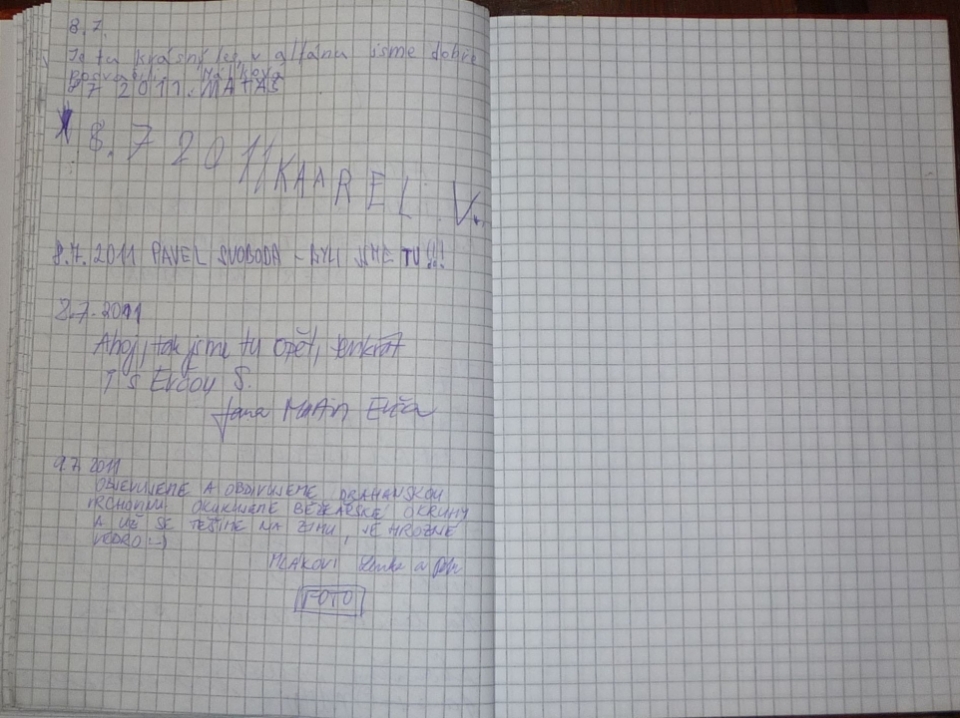 8.7.
Je tu krásný les, v altánu jsme dobře
posvačili.
8 7 2011. MATAS
8. 7 2011 KAAREL V.
8.7. 2011 PAVEL SVOBODA - BYLI JSME TU!!!
8.7.2011
Ahoj, tak jsme tu opět, tenkrát
I s Evčou S.
Jana Evča
9.7. 2011
OBJEVUJEME A OBDIVUJEME DRAHANSKOU
VRCHOVINU OKUKUJEME BĚŽKAŘSKÉ OKRUHY
A UŽ SE TĚŠÍME NA ZIMU, JE HROZNÉ
VEDRO :-)
MLAKOVI Lenka a
FOTO